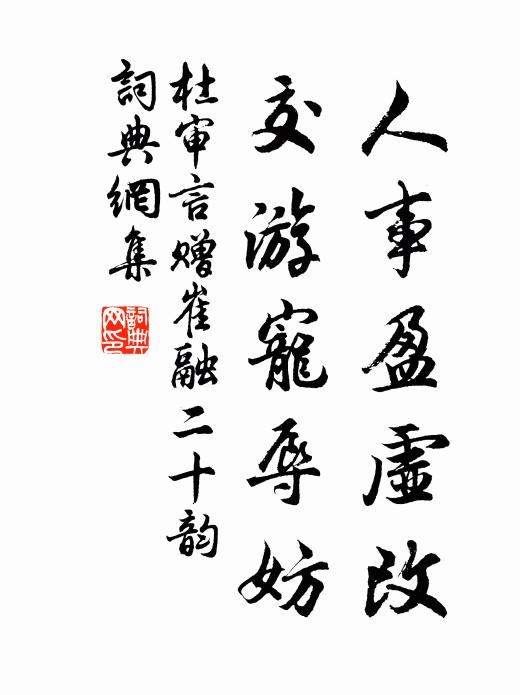 人事盈虚改
交游寵辱妨
杜审言赠崔融二十韵
詞典網集
詞典网印